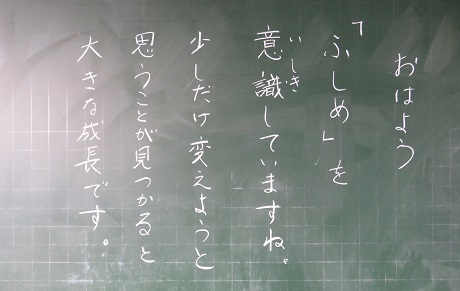 おはよう
「ふしめ」を
意識していますね。
いしき
少しだけ変えようと
思うことが見つかると
大きな成長です。